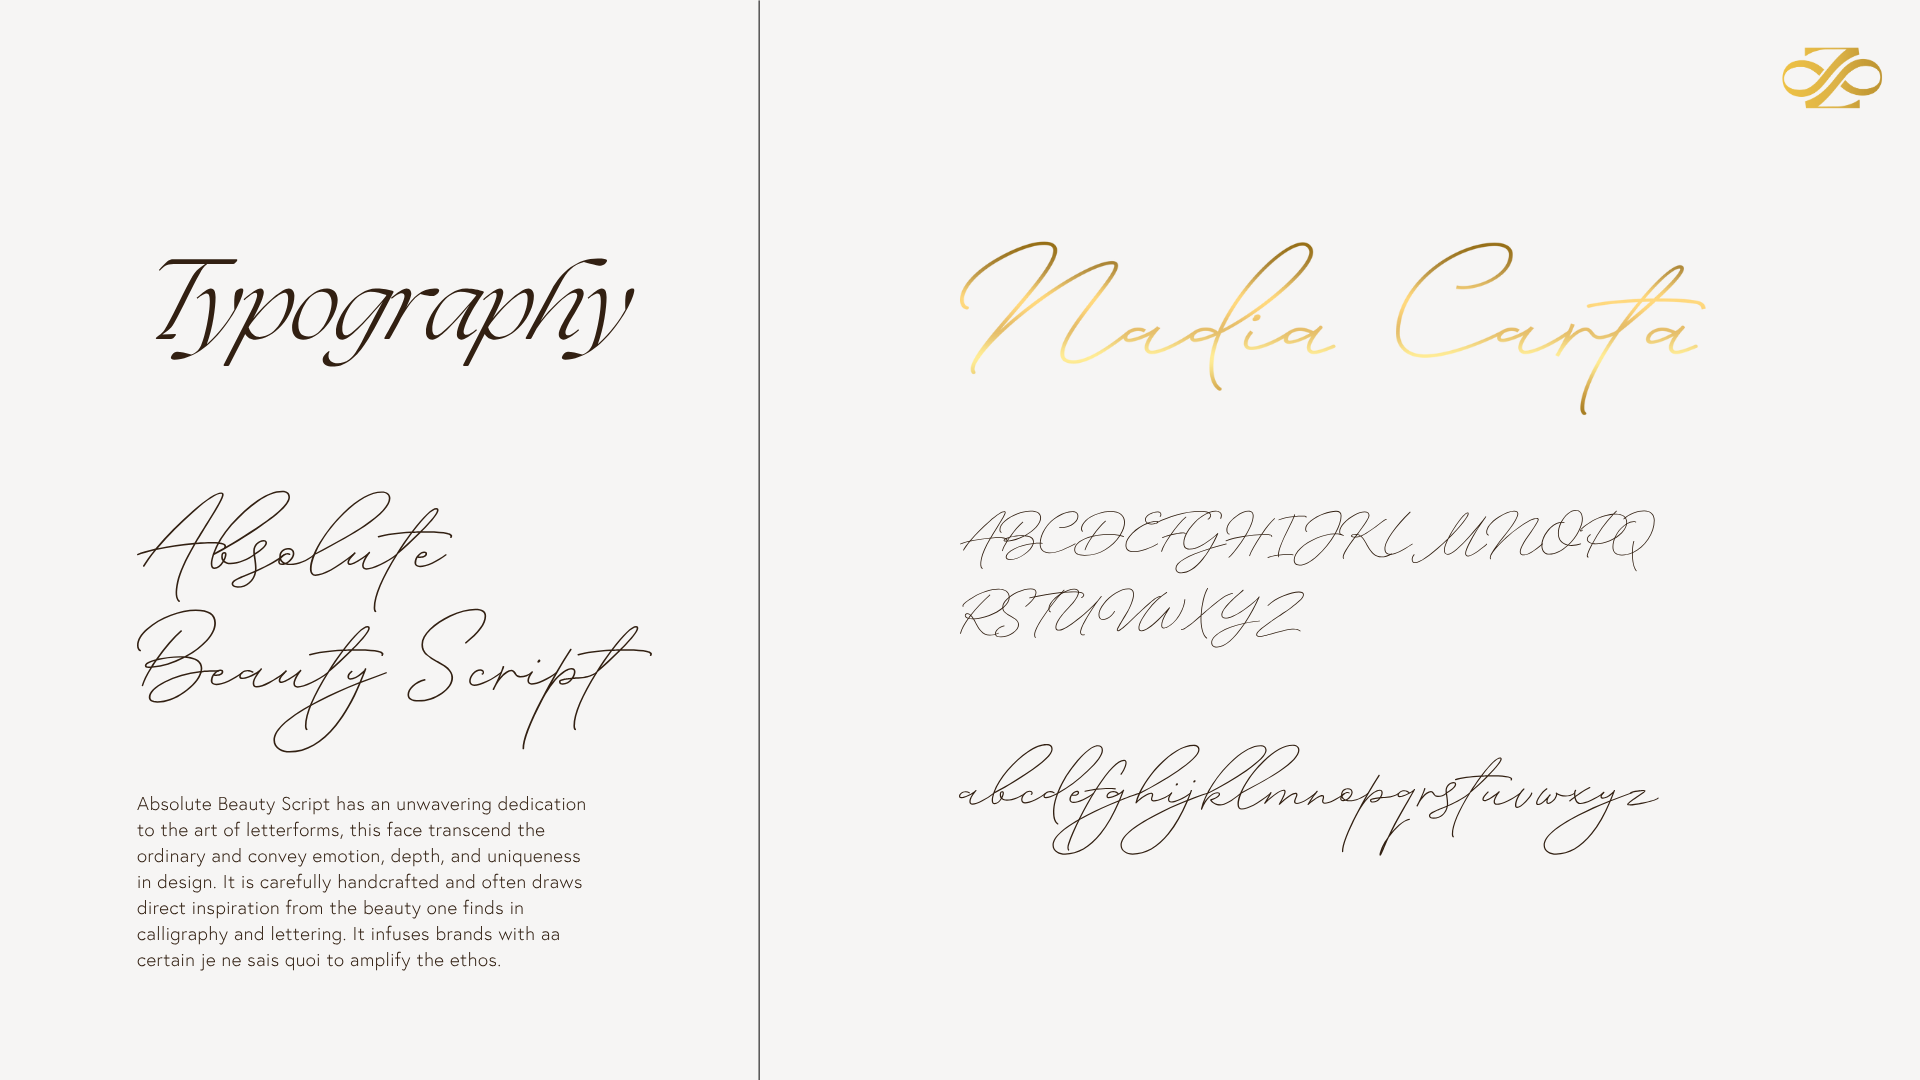 Typography
Absolute
Beauty Script
Absolute Beauty Script has an unwavering dedication
to the art of letterforms, this face transcend the
ordinary and convey emotion, depth, and uniqueness
in design. It is carefully handcrafted and often draws
direct inspiration from the beauty one finds in
calligraphy and lettering. It infuses brands with aa
certain je ne sais quoi to amplify the ethos.
Nadia Carta
ABCDEFGHIJKL MNOPQ
RSTUVWXYZ
abcdefghijklmnopqrstuvwxyz